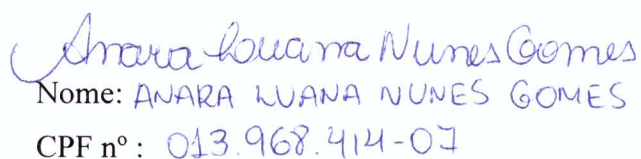 Anara Luana Nunes Gomes
Nome: ANARA LUANA NUNES GOMES
CPF nº : 013.968.414-07